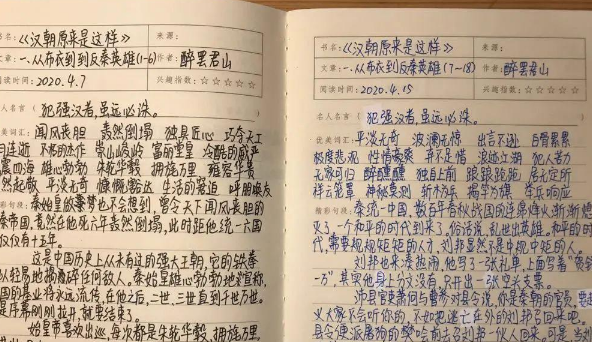 书名:《汉朝原来是这样》
来源:
文章:一、从布衣到到反秦英雄(1-6)
作者:醉罢君山
阅读时间:2020.4.7
兴趣指数:☆☆☆☆☆
名人名言( 犯强汉者,虽远必诛。
美词汇: 闻风丧胆 轰然倒塌 独具匠心 巧夺天工
崇山峻岭 富丽堂皇 冷酷的威严
震四海 雄心勃勃 朱轮华毂 拥旌万里
然起敬 平淡无奇 慷慨豁达 生活的窘迫 呼朋唤友
秦始皇做噩梦也不会想到 曾令天下闻风丧胆的
秦帝国,竟然在他死六年轰然倒塌,此时距他统一六国
仅仅有十五年。
这是中国历史上从未有过的强大王朝,它的铁拳
以轻易地捣碎任何敌人。秦始皇雄心勃勃地宣称,
国的基业将永远流传,在他之后,二世、三世直到千世万世。
是序幕刚刚拉开,就要结束了。
始皇帝喜欢出巡,每次都是朱轮华毂,拥旌万里,
书名:《汉朝原来是这样》
来源:
文章:一、从布衣到到反秦英雄(7-18)
作者:醉罢君山
阅读时间:2020.4.15
兴趣指数:☆☆☆☆☆
名人名言( 犯强汉者,虽远必诛。
优美词汇: 平淡无奇 波澜无惊 出言不逊 白骨累累
极度悲观 性情豪爽 并不足惜 浪迹江湖 犯人若力
无家可归 醉醺醺 独自上前 踉踉跄跄 居无定所
祥云笼罩 神秘莫测 斩木为兵 揭竿为旗 云集响应
精彩句段: 秦统一中国,数百年春秋战国的连绵烽火渐渐熄
灭了,一个和平的时代到来了,俗话说,乱世出英雄。和平的时
代,需要规规矩矩的人才,刘邦显然不是中规中矩的人。
刘邦也来凑热闹,他写了一张礼单,上面写着"贺钱
一万",其实他身上分文没有,只开出一张空头支票。
沛县官吏萧何与曹参对县令说,你是秦朝的官员,
义大家不会听你的,不如把逃亡在外的刘邦召回来吧。
县令便派屠狗的樊哙前去召刘邦一伙人回来。可是,当刘